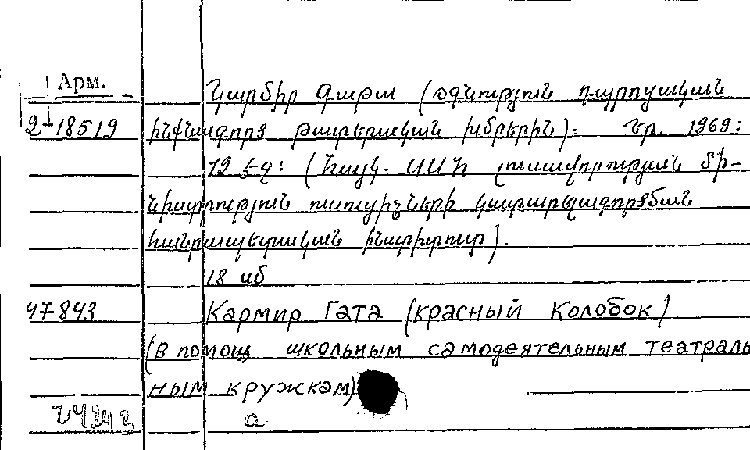 Арм.
Կարմիր Գաթա (օգնություն դպրոցական
2-18519 ինքնագործ թատերական խմբերին): Եր. 1969:
79 էջ: (Հայկ. ՍՍՀ լուսավորության մի-
նիստրություն ուսուցիչների կատարելագործման
հանրապետական ինստիտուտ).
18 սմ
47843 Кармир Гата (красный Колобок)
(в помощ школьным самодеятельным театраль
ным кружкам)
а